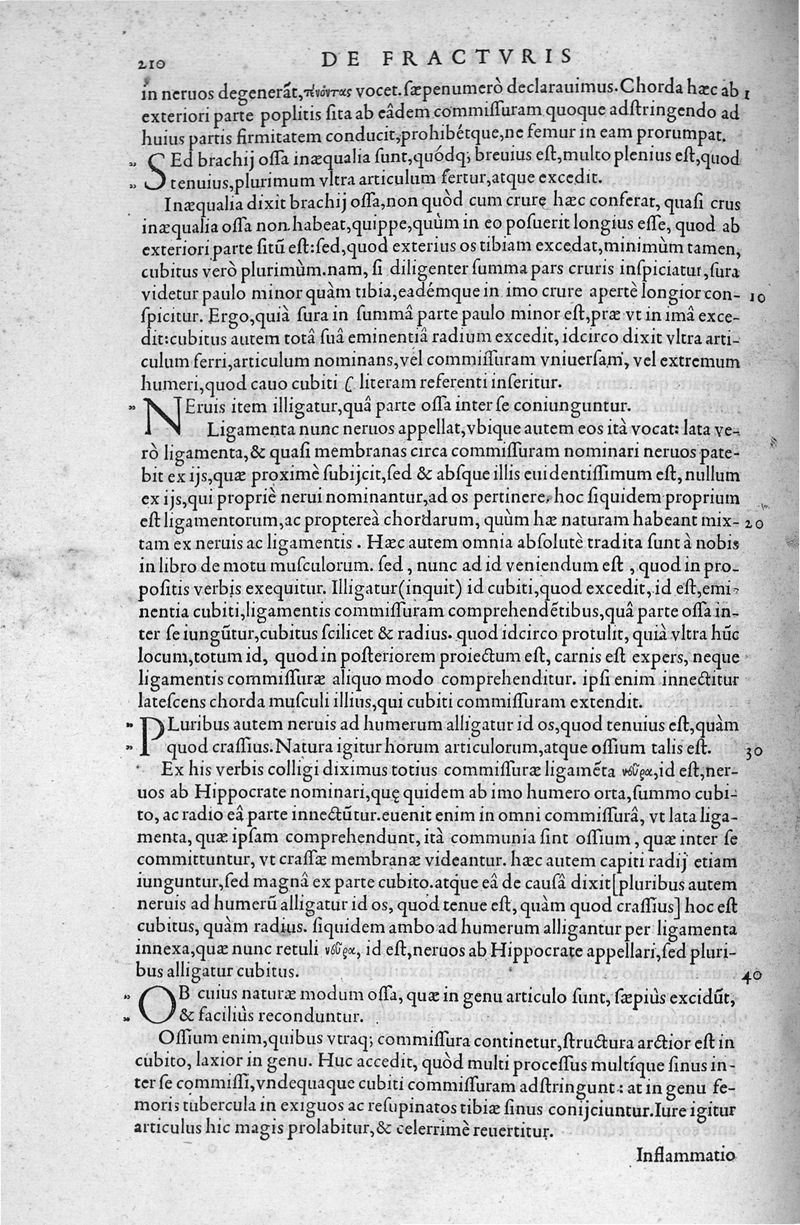 210 DE FRACTVRIS
in neruos degenerãt,τένοντας vocet.ſæpenumerò declarauimus.Chorda hæc ab 1
exteriori parte poplitis ſita ab eâdem commiſſuram quoque adſtringendo ad
huius partis firmitatem conducit,prohibétque,ne femur in eam prorumpat.
„ SEd brachij oſſa inæqualia ſunt,quódq; breuius eſt,multo plenius eſt,quod
„ tenuius,plurimum vltra articulum fertur,atque excedit.
Inæqualia dixit brachij oſſa,non quòd cum crure hæc conferat, quaſi crus
inæqualia oſſa non habeat,quippe,quùm in eo poſuerit longius eſſe, quod ab
exteriori parte ſitũ eſt:ſed,quod exterius os tibiam excedat,minimùm tamen,
cubitus verò plurimùm.nam, ſi diligenter ſumma pars cruris inſpiciatur,ſura
videtur paulo minor quàm tibia,eadémque in imo crure apertè longior con- 10
ſpicitur. Ergo,quià ſura in ſummâ parte paulo minor eſt,præ vt in imâ exce-
dit:cubitus autem totâ ſuâ eminentiâ radium excedit, idcirco dixit vltra arti-
culum ferri,articulum nominans,vel commiſſuram vniuerſam, vel extremum
humeri,quod cauo cubiti C literam referenti inſeritur.
„ NEruis item illigatur,quâ parte oſſa inter ſe coniunguntur.
Ligamenta nunc neruos appellat,vbique autem eos ità vocat: lata ve-
rò ligamenta,& quaſi membranas circa commiſſuram nominari neruos pate-
bit ex ijs,quæ proximè ſubijcit,ſed & abſque illis euidentiſſimum eſt,nullum
ex ijs,qui propriè nerui nominantur,ad os pertinere, hoc ſiquidem proprium
eſt ligamentorum,ac proptereà chordarum, quùm hæ naturam habeant mix- 20
tam ex neruis ac ligamentis . Hæc autem omnia abſolutè tradita ſunt à nobis
in libro de motu muſculorum. ſed , nunc ad id veniendum eſt , quod in pro-
poſitis verbis exequitur. Illigatur(inquit) id cubiti,quod excedit, id eſt,emi-
nentia cubiti,ligamentis commiſſuram comprehendẽtibus,quâ parte oſſa in-
ter ſe iungũtur,cubitus ſcilicet & radius. quod idcirco protulit, quià vltra hũc
locum,totum id, quod in poſteriorem proiectum eſt, carnis eſt expers, neque
ligamentis commiſſuræ aliquo modo comprehenditur. ipſi enim innectitur
lateſcens chorda muſculi illius,qui cubiti commiſſuram extendit.
„ PLuribus autem neruis ad humerum alligatur id os,quod tenuius eſt,quàm
„ quod craſſius.Natura igitur horum articulorum,atque oſſium talis eſt. 30
Ex his verbis colligi diximus totius commiſſuræ ligamẽta νεῦρα,id eſt,ner-
uos ab Hippocrate nominari,quę quidem ab imo humero orta,ſummo cubi-
to, ac radio eâ parte innectũtur.euenit enim in omni commiſſurâ, vt lata liga-
menta, quæ ipſam comprehendunt, ità communia ſint oſſium , quæ inter ſe
committuntur, vt craſſæ membranæ videantur. hæc autem capiti radij etiam
iunguntur,ſed magnâ ex parte cubito.atque eâ de cauſâ dixit[pluribus autem
neruis ad humerũ alligatur id os, quod tenue eſt, quàm quod craſſius] hoc eſt
cubitus, quàm radius. ſiquidem ambo ad humerum alligantur per ligamenta
innexa,quæ nunc retuli νεῦρα, id eſt,neruos ab Hippocrate appellari,ſed pluri-
bus alligatur cubitus. 40
„ OB cuius naturæ modum oſſa, quæ in genu articulo ſunt, ſæpiùs excidũt,
„ & faciliùs reconduntur.
Oſſium enim,quibus vtraq; commiſſura continetur,ſtructura arctior eſt in
cubito, laxior in genu. Huc accedit, quòd multi proceſſus multíque ſinus in-
ter ſe commiſſi,vndequaque cubiti commiſſuram adſtringunt: at in genu fe-
moris tubercula in exiguos ac reſupinatos tibiæ ſinus conijciuntur.Iure igitur
articulus hic magis prolabitur,& celerrimè reuertitur.
Inflammatio